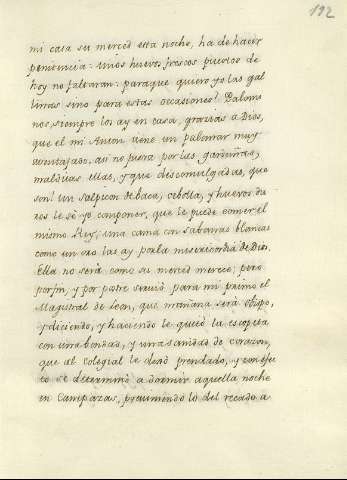 192
mi casa su merced esta noche, ha de hacer
penitencia: unos huevos frescos puestos de
hoy no faltaran: paraque quiero yo las gal
linas sino para estas ocasiones? Palomi
nos, siempre los ay en casa, gracias a Dios,
que el mi Anton tiene un palomar muy
aventajado, asi no fuera por las garduñas,
malditas ellas, y que descomulgadas, que
son! un salpicon de baca, cebolla, y huevos du
ros le sé yo componer, que le puede comer el
mismo Rey, una cama con sabanas blancas
como un oro las ay por la misericordia de Dios.
Ella no será como su merced merece; pero
por fin, y por postre sirvió para mi primo el
Magistral de Leon, que mañana será obispo,
y diciendo, y haciendo le quitó la escopeta
con una bondad, y una sanidad de corazon,
que al colegial le dexó prendado, y con efec
to se determinó a dormir aquella noche
en Campazas, previniendolo del recado a